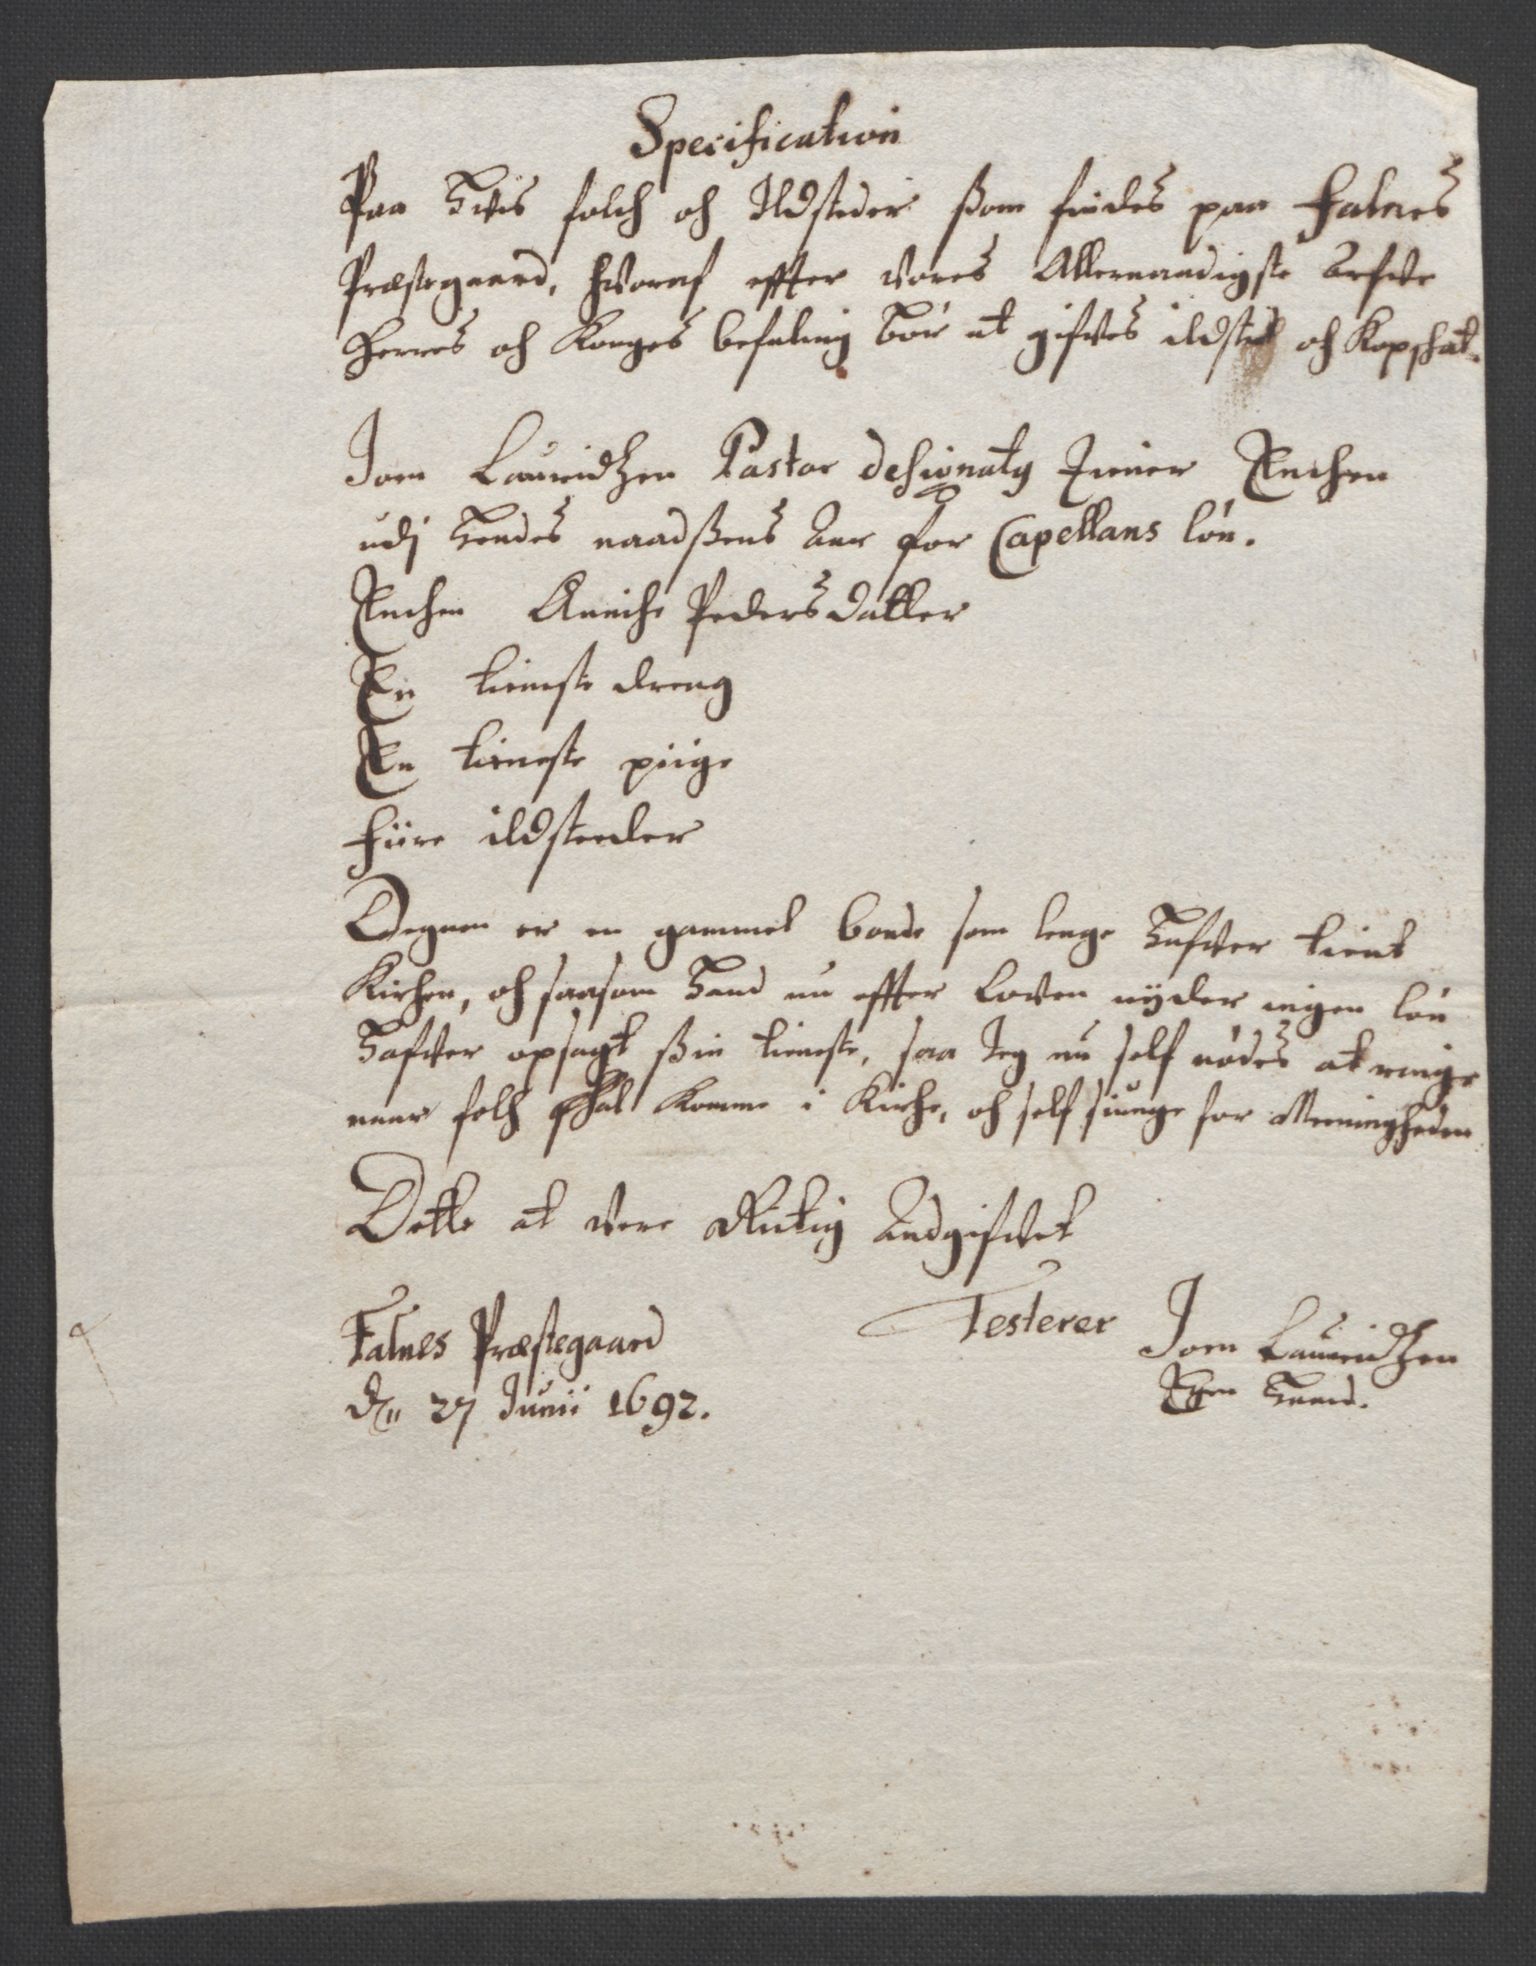 Specification
Paa Hvis folch och Ildsteder ßom findes paa Falnes
Præstegaard, hvoraf effter vores Allernaadigste Arfve
Herres och Konges befaling bør at gifves ildsted och Kopschat.
Joen Lauridtzen Pastor designatg tiener Enchen
udj Hendes naadßens Aar for Capellans løn.
Enchen Anniche Pedersdatter
En tieneste dreng
En tieneste piige
Fiire ildsteeder
Degnen er en gammel bonde som lenge Hafver tient
Kirchen, och saasom Hand nu effter Loven nyder ingen løn
Hafver opsagt ßin tieneste, saa Jeg nu self nødes at ringe
naar folch schal komme i Kirche, och self siunge for Meenigheden
Dette at vere Rictig Andgifvet
Falnes Præstegaard Testerer Joen Lauridtzen
dn 27 Junii 1692. Egen Haand.